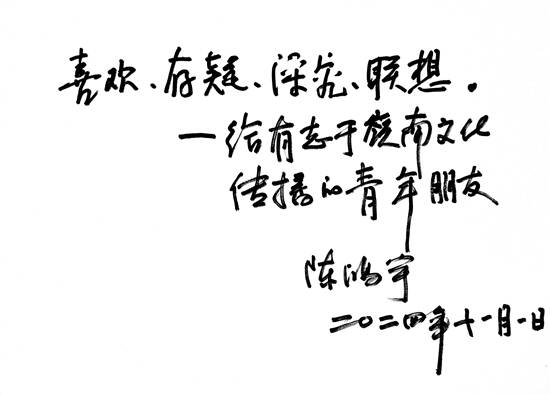 喜欢、存疑、深究、联想。
—给有志于岭南文化
传播的青年朋友
陈鸿宇
二〇二四年十一月一日